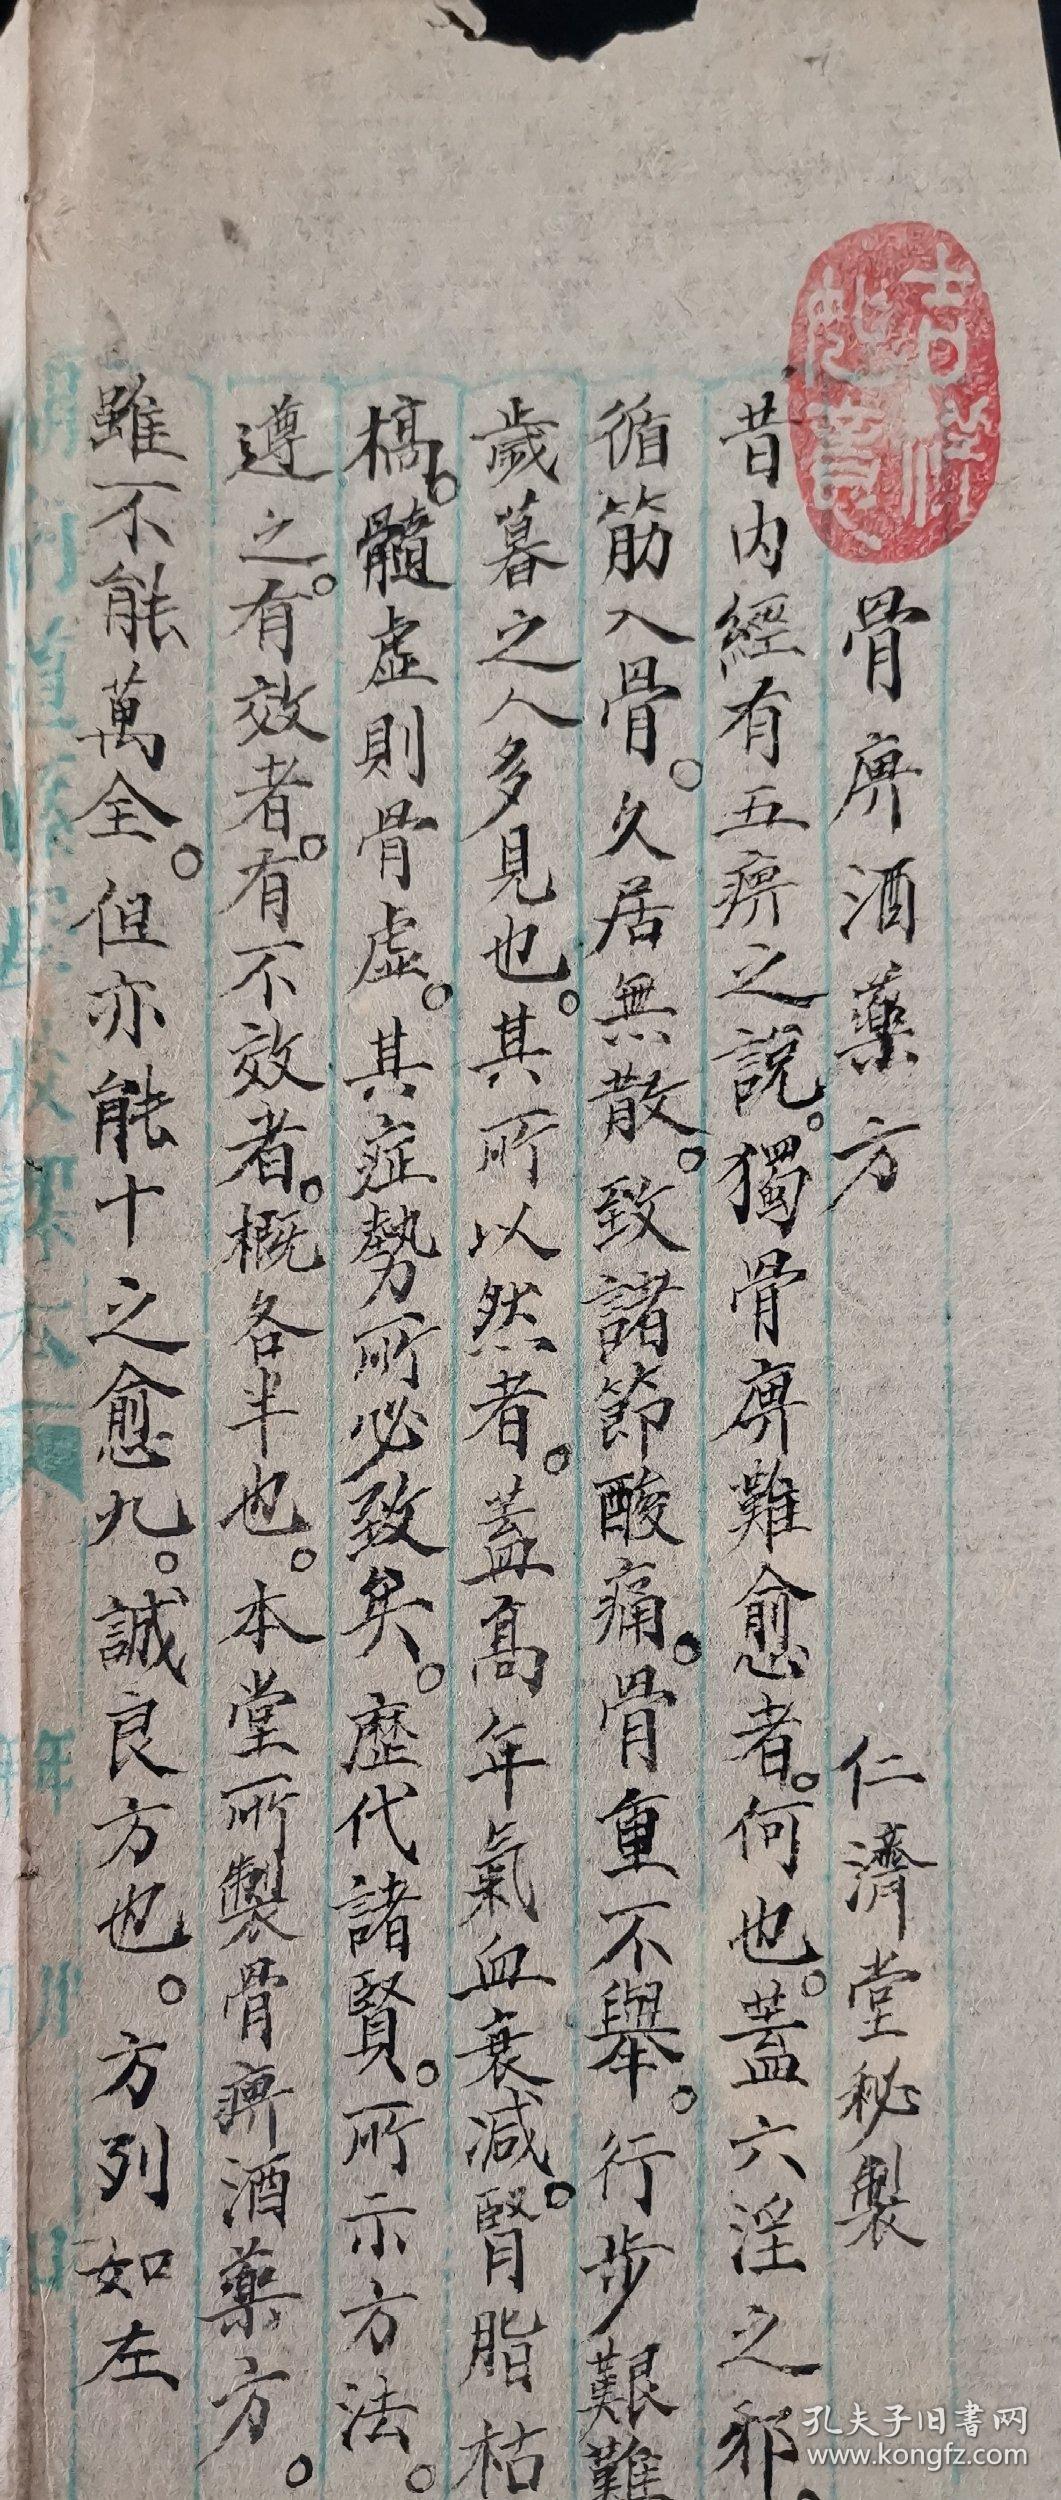 骨痹酒藥方 仁濟堂秘製
昔内經有五痹之說。獨骨痹難愈者。何也。蓋六淫之邪。
循筋入骨。久居無散。致諸節酸痛。骨重不舉。行步艱難
歲暮之人多見也。其所以然者。蓋高年氣血衰減。腎脂枯
槁。髓虛則骨虛。其症勢所必致矣。歷代諸賢。所示方法。
遵之。有效者。有不效者。概各半也。本堂所製骨痹酒藥方。
雖不能萬全。但亦能十之愈九。誠良方也。方列如左
孔夫子旧書网
www.kongfz.com